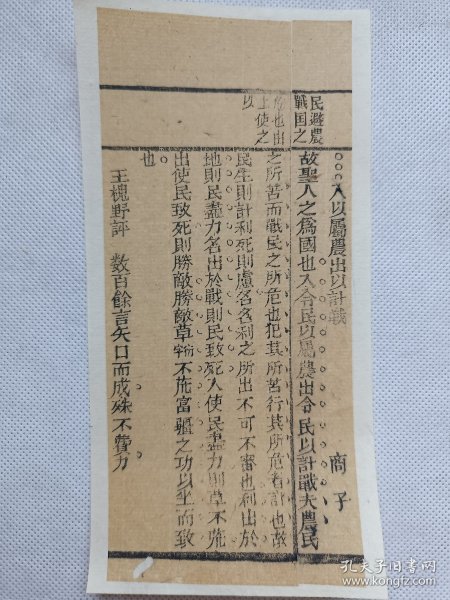 民避農
戰国之
也由
上使之
以
入以屬農出以計戰　商子
故聖人之爲國也入令民以屬農出令民以計戰夫農民
之所苦而戰民之所危也犯其所苦行其所危者計也故
民生則計利死則慮名名利之所出不可不審也利出於
地則民盡力名出於戰則民致死入使民盡力則草不荒
出使民致死則勝敵勝敵草衍字不荒富彊之功以坐而致
也
王槐野評　数百餘言矢口而成殊不費力
孔夫子旧书网